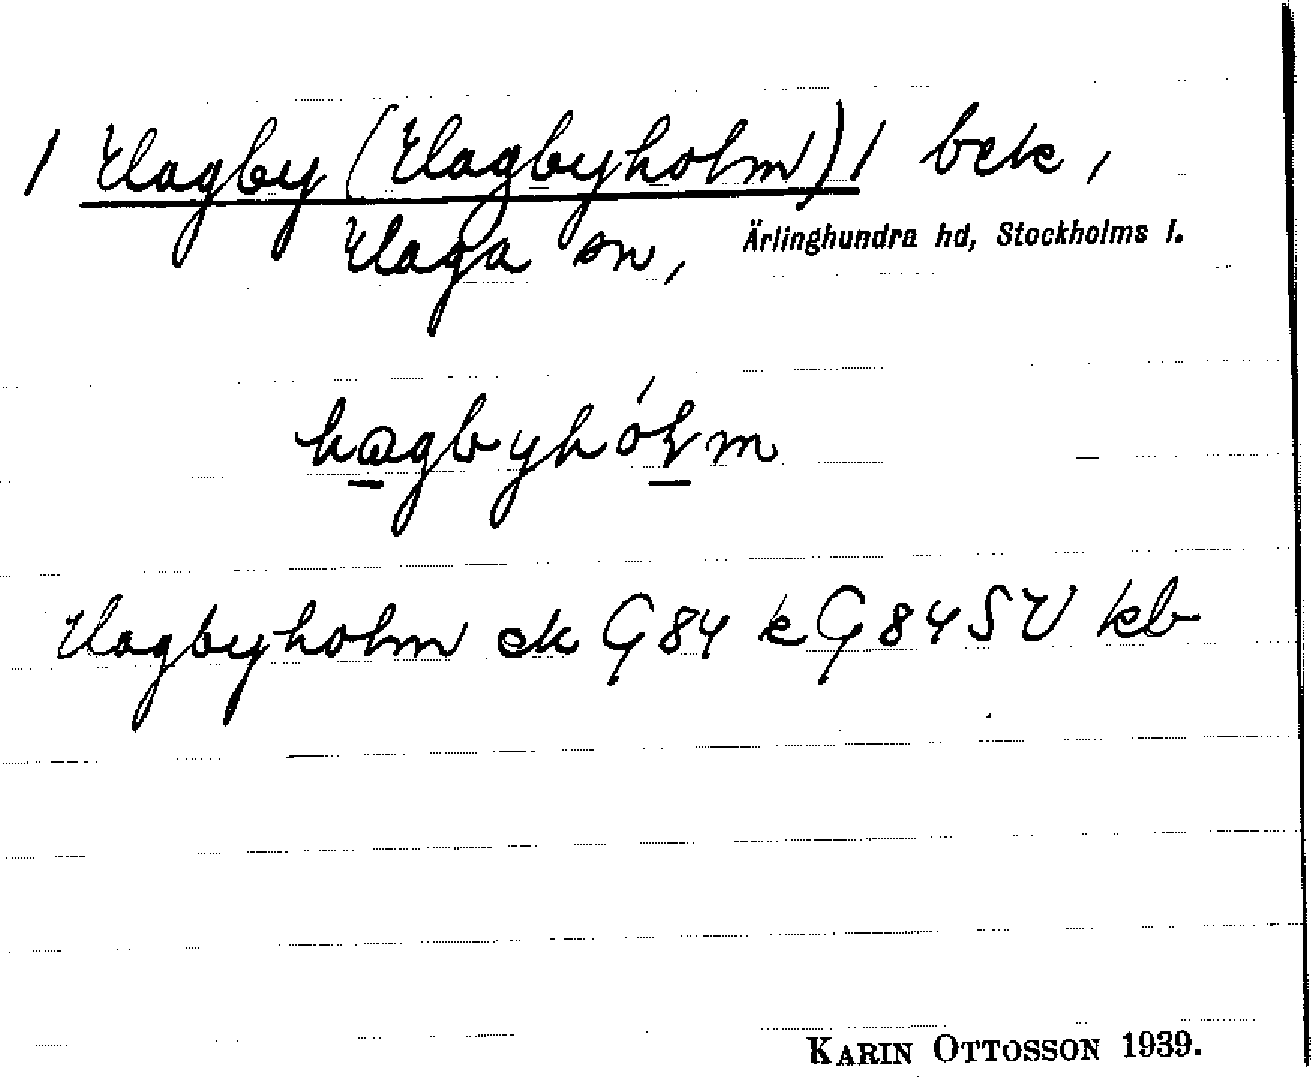 / Hagby (Hagbyholm) / bek,
Haga sn, Ärlinghundra hd, Stockholms l.
hagbyhólm
Hagbyholm ek G84 k G84SV kb
KARIN OTTOSSON 1939.